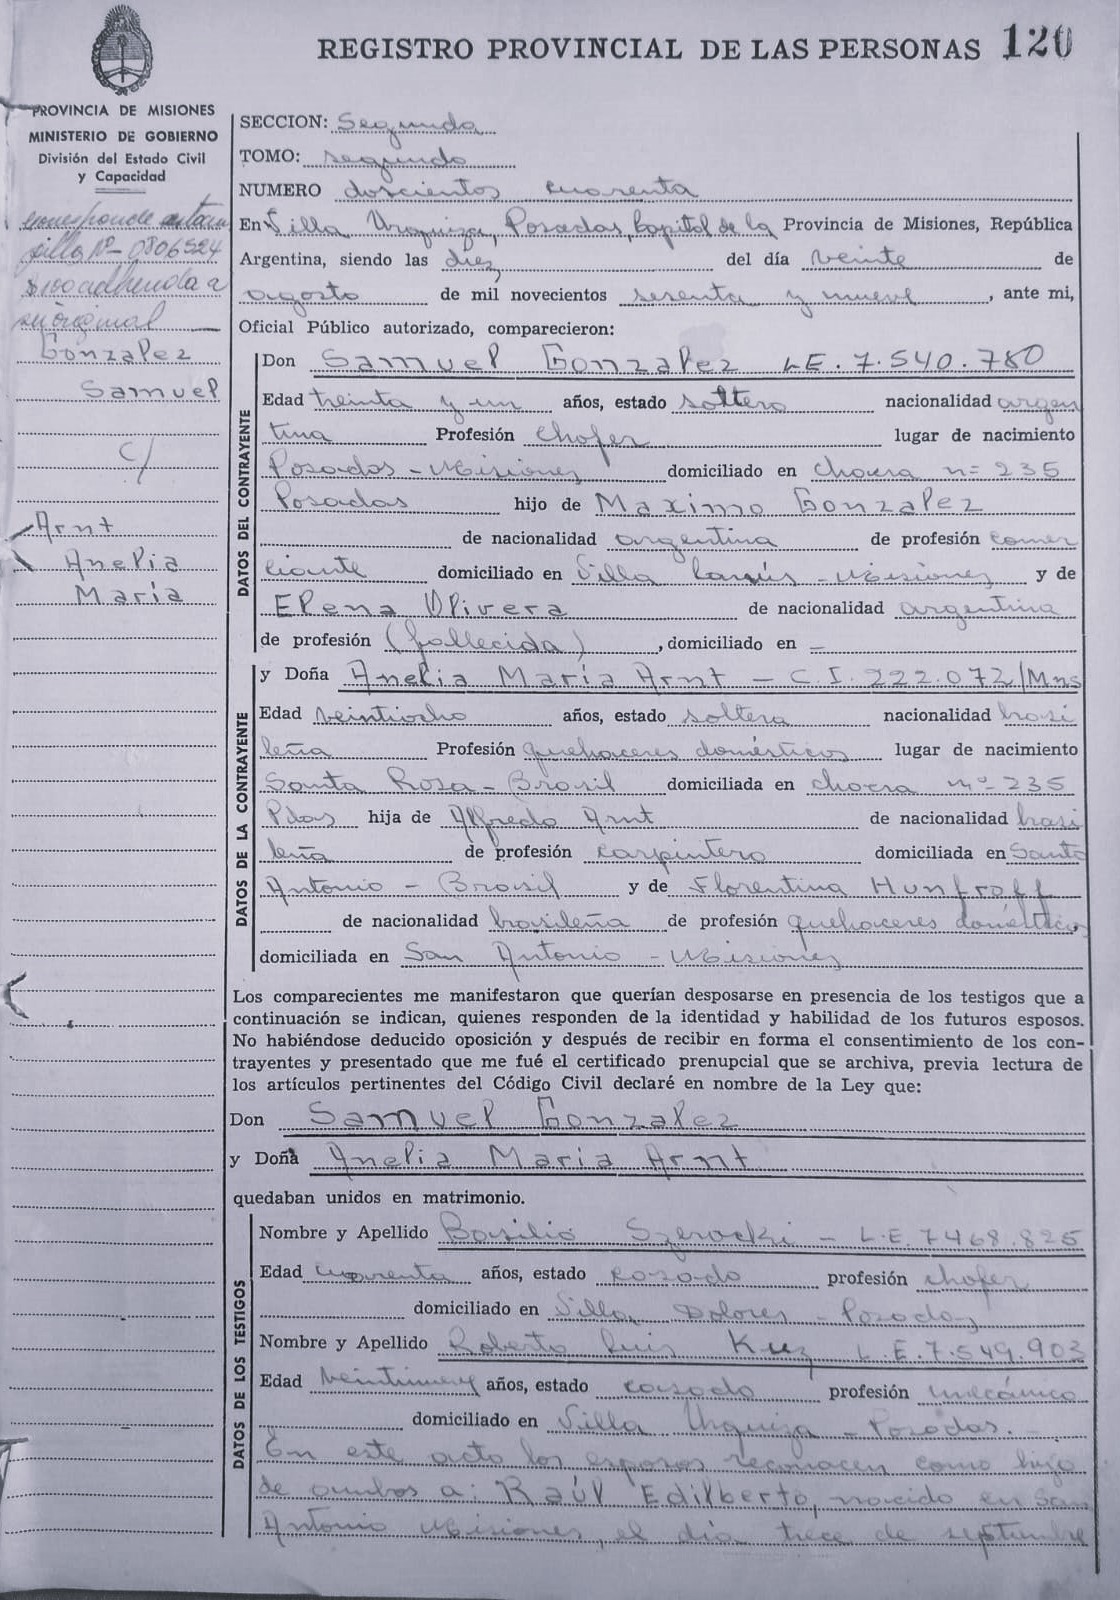 REGISTRO PROVINCIAL DE LAS PERSONAS 120
PROVINCIA DE MISIONES
MINISTERIO DE GOBIERNO
División del Estado Civil
y Capacidad
corresponde estam
pilla Nº 0806524
$100 adherida a
su original
Gonzalez
Samuel
c/
Arnt
Anelia
Maria
SECCION: Segunda
TOMO: segundo
NUMERO doscientos cuarenta
En Villa Urquiza, Posadas, Capital de la Provincia de Misiones, República
Argentina, siendo las diez del día veinte de
agosto de mil novecientos sesenta y nueve, ante mi,
Oficial Público autorizado, comparecieron:
DATOS DEL CONTRAYENTE
Don Samuel Gonzalez LE. 7.540.780
Edad treinta y un años, estado soltero nacionalidad argen
tina Profesión chofer lugar de nacimiento
Posadas - Misiones domiciliado en chacra n= 235
Posadas hijo de Maximo Gonzalez
de nacionalidad argentina de profesión comer
ciante domiciliado en Villa Lanús - Misiones y de
Elena Olivera de nacionalidad argentina
de profesión (fallecida), domiciliado en —
DATOS DE LA CONTRAYENTE
y Doña Anelia María Arnt - C.I. 222.072/Mns
Edad veintiocho años, estado soltera nacionalidad brasi
leña Profesión quehaceres domésticos lugar de nacimiento
Santa Rosa - Brasil domiciliada en chacra nº 235
Pdas hija de Alfredo Arnt de nacionalidad brasi
leña de profesión carpintero domiciliada en Santo
Antonio - Brasil y de Florentina Hunfroff
de nacionalidad brasileña de profesión quehaceres domésticos
domiciliada en San Antonio - Misiones
Los comparecientes me manifestaron que querían desposarse en presencia de los testigos que a
continuación se indican, quienes responden de la identidad y habilidad de los futuros esposos.
No habiéndose deducido oposición y después de recibir en forma el consentimiento de los con-
trayentes y presentado que me fué el certificado prenupcial que se archiva, previa lectura de
los artículos pertinentes del Código Civil declaré en nombre de la Ley que:
Don Samuel Gonzalez
y Doña Anelia Maria Arnt
quedaban unidos en matrimonio.
DATOS DE LOS TESTIGOS
Nombre y Apellido Basilio Szerocki - L.E. 7468.825
Edad cuarenta años, estado casado profesión chofer
domiciliado en Villa Dolores - Posadas
Nombre y Apellido Roberto Luis Kuz L.E. 7.549.903
Edad veintinueve años, estado casado profesión mecánico
domiciliado en Villa Urquiza - Posadas. -
En este acto los esposos reconocen como hijo
de ambos a: Raúl Edilberto, nacido en San
Antonio Misiones, el día trece de septiembre